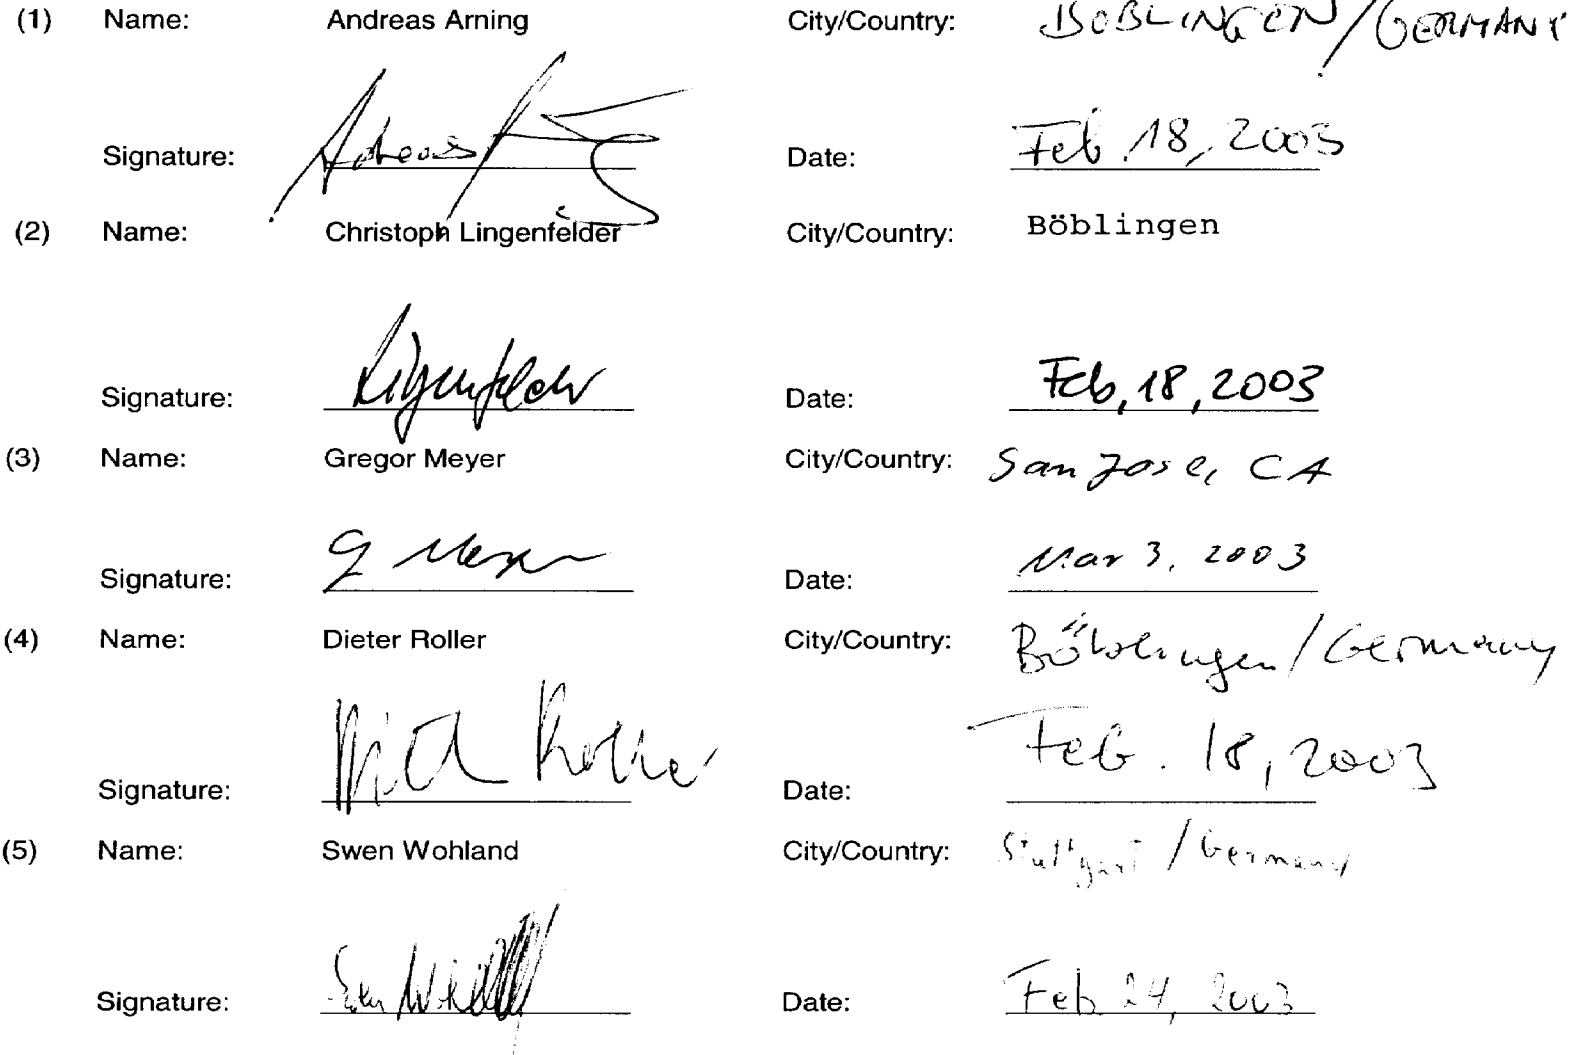 (1) Name: Andreas Arning City/Country: BÖBLINGEN/GERMANY
Signature: Andreas Date: Feb. 18, 2003
(2) Name: Christoph Lingenfelder City/Country: Böblingen
Signature: Lingenfelder Date: Feb, 18, 2003
(3) Name: Gregor Meyer City/Country: San Jose, CA
Signature: G Meyer Date: Mar 3, 2003
(4) Name: Dieter Roller City/Country: Böblingen/Germany
Signature: Dieter Roller Date: Feb. 18, 2003
(5) Name: Swen Wohland City/Country: Stuttgart/Germany
Signature: Swen Wohland Date: Feb 24, 2003